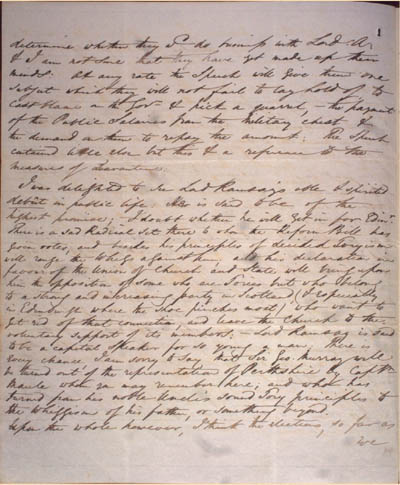 1
determine whether they cd do business with Lord A,
& I am not sure that they have yet made up their
minds. At any rate the Speech will give them one
subject which they will not fail to lay hold of, to
cast blame on the Govr & pick a quarrel, – the payment
of the Public Salaries from the Military chest &
the demand on them to repay the amount; The Speech
contained little else but this & a reference to the
measures of Quarantine.
I was delighted to see Lord Ramsay's able & spirited
debut in public life. He is said to be of the
highest promise; I doubt whether he will get in for Edinr.
There is a sad Radical set there to whom the Reform Bill has
given votes, and besides his principles of decided Toryism
will range the Whigs against him, also his declaration in
favour of the Union of Church and State, will bring upon
him the opposition of some who are Tories but who belong
to a strong and increasing party in Scotland (& especially
in Edinburgh where the shoe pinches most) who want to
get rid of that connection and leave the Church to the
voluntary support of its members. – Lord Ramsay is said
to be a capital speaker for so young a man. There is
every chance I am sorry to say that Sir Geo Murray will
be turned out of the representation of Perthshire by Captn
Maule whom you may remember here; and whom has
turned from his noble Uncle's sound Tory principles to
the Whiggism of his father, or something beyond.
Upon the whole however, I think the elections, so far as
we